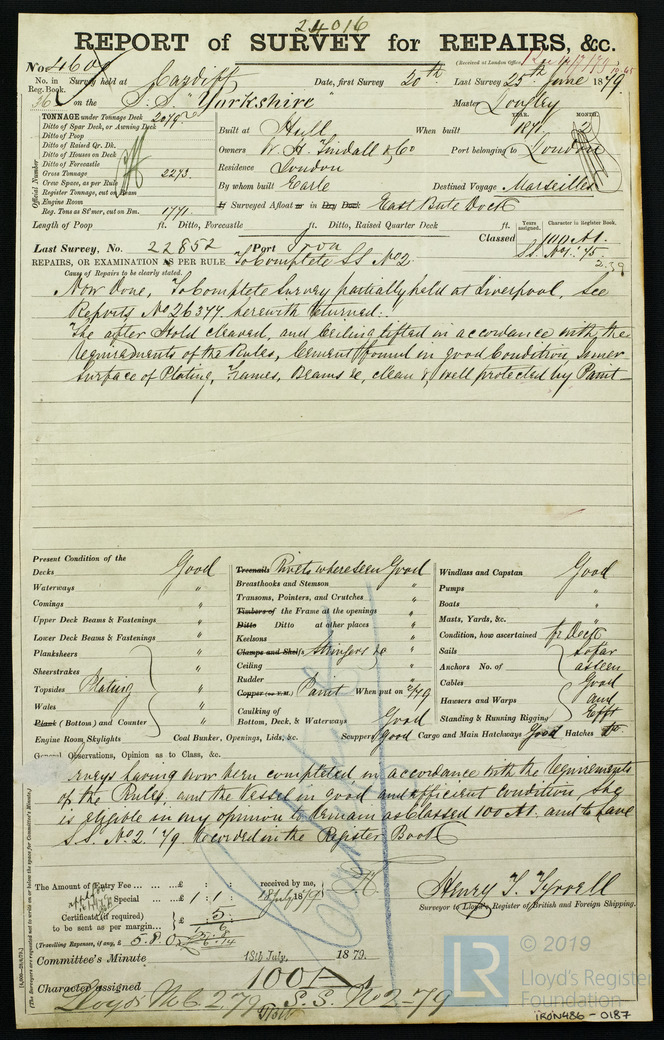 24016
REPORT of SURVEY for REPAIRS, &c.
No. 4608
(Received at London Office,
No. in Reg. Book.
Survey held at Cardiff Date, first Survey 20th Last Survey 25th June 1879.
36 on the S.S. "Yorkshire" Master
TONNAGE under Tonnage Deck 2079
Ditto of Spar Deck, or Awning Deck
Ditto of Poop
Ditto of Raised Qr. Dk.
Ditto of Houses on Deck
Ditto of Forecastle
Gross Tonnage 2273
Crew Space, as per Rule
Register Tonnage, cut on Beam
Engine Room
Reg. Tons as St'mer, cut on Bm. 1771
Official Number
YEAR. MONTH.
Built at Hull When built 1871 2
Owners W. H. Tindall & Co Port belonging to London
Residence London
By whom built Earle Destined Voyage Marseilles
If Surveyed Afloat or in Dry Dock East Bute Dock
Length of Poop ft. Ditto, Forecastle ft. Ditto, Raised Quarter Deck ft.
Years assigned. Character in Register Book,
Classed 100 A1.
S.S. No 1. '75
2.79
Last Survey, No. 22852 Port Iron
REPAIRS, OR EXAMINATION AS PER RULE To Complete SS No 2.
Cause of Repairs to be clearly stated.
Now Done, To Complete Survey partially held at Liverpool, See
Reports No 26377 herewith returned.
The after Hold cleared, and Ceiling lifted in accordance with the
requirements of the Rules, Cement found in good Condition, Inner
Surface of Plating, Frames, Beams &c, clean & well protected by Paint
Present Condition of the
Decks Good
Waterways "
Comings "
Upper Deck Beams & Fastenings "
Lower Deck Beams & Fastenings "
Planksheers "
Sheerstrakes "
Topsides Plating "
Wales "
Plank (Bottom) and Counter "
Engine Room Skylights "
Treenails Rivets where seen Good
Breasthooks and Stemson "
Transoms, Pointers, and Crutches "
Timbers of the Frame at the openings "
Ditto Ditto at other places "
Keelsons "
Clamps and Shelfs Stringers &c "
Ceiling "
Rudder "
Copper (or Y.M.) Paint When put on 2/79
Caulking of
Bottom, Deck, & Waterways Good
Coal Bunker, Openings, Lids, &c. Scuppers good Cargo and Main Hatchways Good Hatches Do
Windlass and Capstan Good
Pumps "
Boats "
Masts, Yards, &c. "
Condition, how ascertained fr Deck
Sails so far
Anchors No. of as seen
Cables Good
Hawsers and Warps and
Standing & Running Rigging Efft
General Observations, Opinion as to Class, &c.
Surveys having now been completed in accordance with the requirements
of the Rules, and the Vessel in good and efficient condition she
is eligible in my opinion to remain as Classed 100 A1. and to have
S.S. No 2. '79 recorded in the Register Book
(The Surveyors are requested not to write on or below the space for Committee's Minute.)
The Amount of Entry Fee ... £ : : received by me,
Special ... £ 1 : 1 : 18 July 1879
Certificate (if required)
to be sent as per margin... £ : 5 :
(Travelling Expenses, if any, £ 5.8.0)
Henry T. Tyrrell
Surveyor to Lloyd's Register of British and Foreign Shipping.
Committee's Minute 18th July. 1879.
Character assigned 100 A1
Lloyds M C 2.79 S.S. No 2-79
LR
© 2019
Lloyd's Register
Foundation
IRON486 - 0187